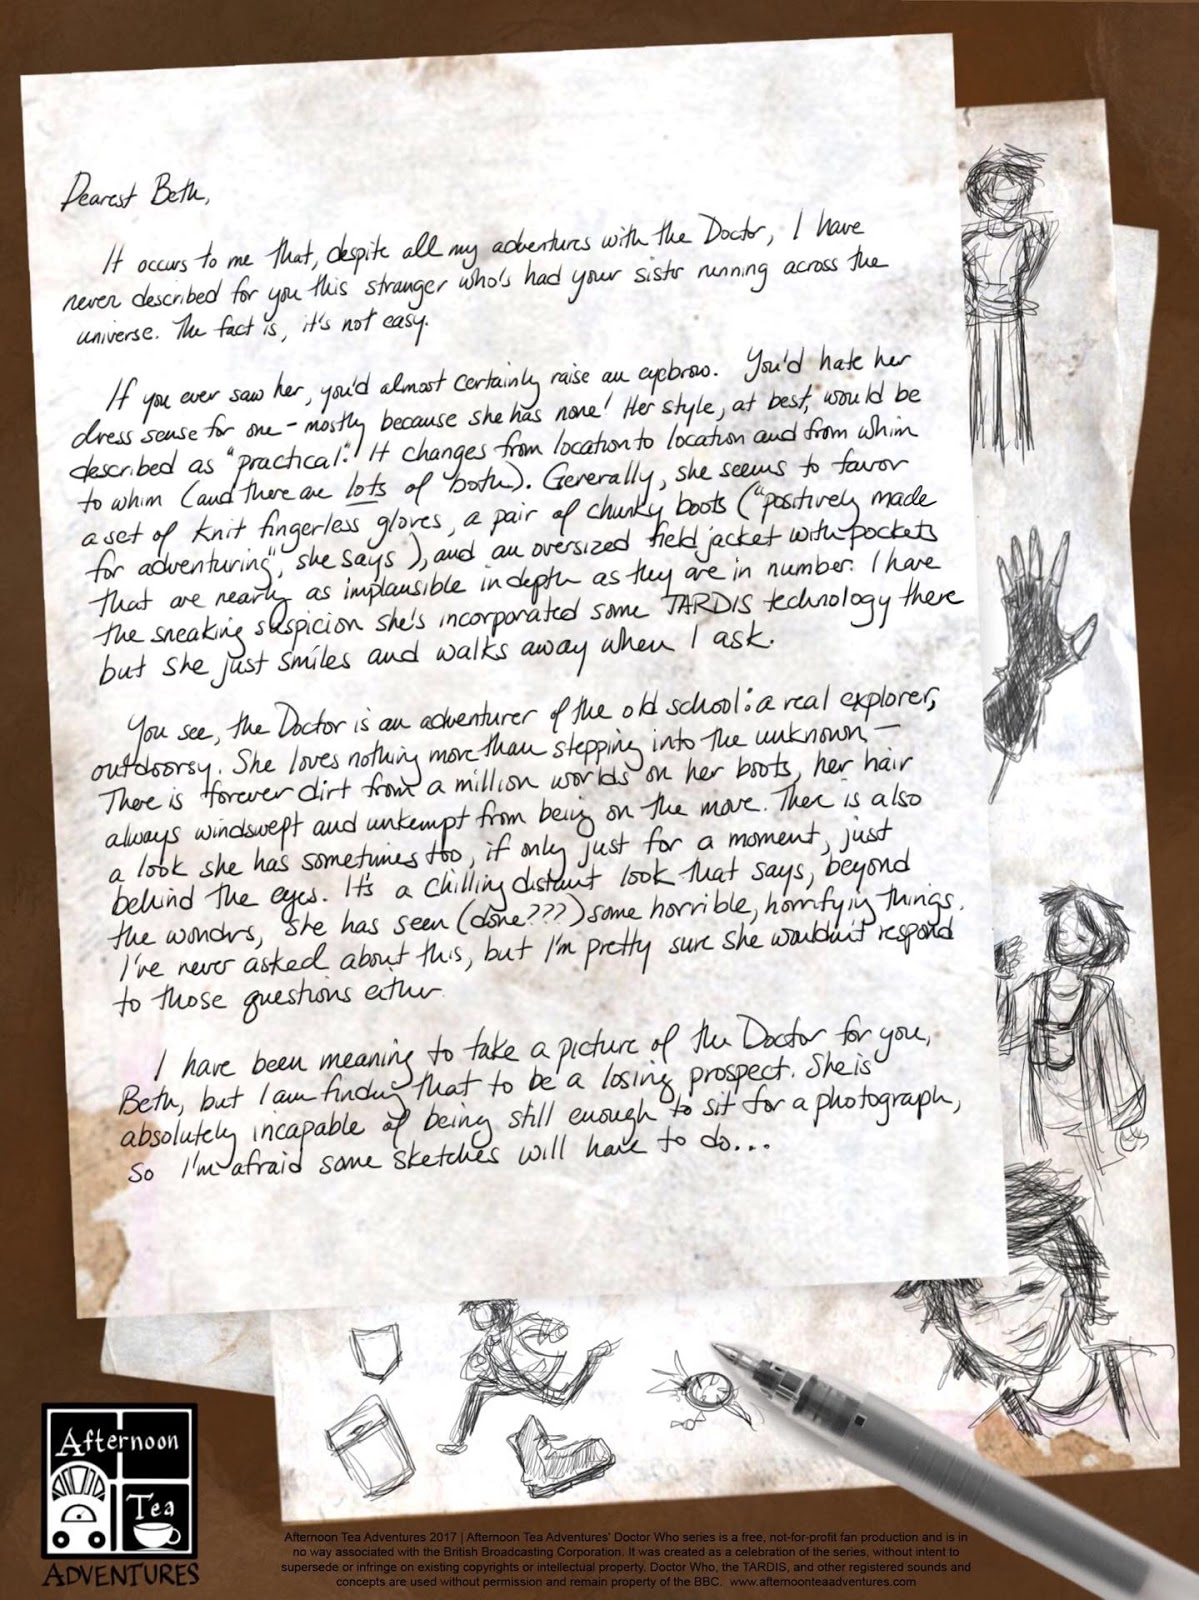 Dearest Beth,
It occurs to me that, despite all my adventures with the Doctor, I have
never described for you this stranger who's had your sister running across the
universe. The fact is, it's not easy.
If you ever saw her, you'd almost certainly raise an eyebrow. You'd hate her
dress sense for one - mostly because she has none! Her style, at best, would be
described as "practical". It changes from location to location and from whim
to whim (and there are lots of both). Generally, she seems to favor
a set of knit fingerless gloves, a pair of chunky boots ("positively made
for adventuring", she says), and an oversized field jacket with pockets
that are nearly as implausible in depth as they are in number. I have
the sneaking suspicion she's incorporated some TARDIS technology there
but she just smiles and walks away when I ask.
You see, the Doctor is an adventurer of the old school: a real explorer,
outdoorsy. She loves nothing more than stepping into the unknown —
There is forever dirt from a million worlds on her boots, her hair
always windswept and unkempt from being on the move. There is also
a look she has sometimes too, if only just for a moment, just
behind the eyes. It's a chilling distant look that says, beyond
the wonders, she has seen (done???) some horrible, horrifying things.
I've never asked about this, but I'm pretty sure she wouldn't respond
to those questions either.
I have been meaning to take a picture of the Doctor for you,
Beth, but I am finding that to be a losing prospect. She is
absolutely incapable of being still enough to sit for a photograph,
so I'm afraid some sketches will have to do...
Afternoon
Tea
ADVENTURES
Afternoon Tea Adventures 2017 | Afternoon Tea Adventures' Doctor Who series is a free, not-for-profit fan production and is in
no way associated with the British Broadcasting Corporation. It was created as a celebration of the series, without intent to
supersede or infringe on existing copyrights or intellectual property. Doctor Who, the TARDIS, and other registered sounds and
concepts are used without permission and remain property of the BBC. www.afternoonteaadventures.com